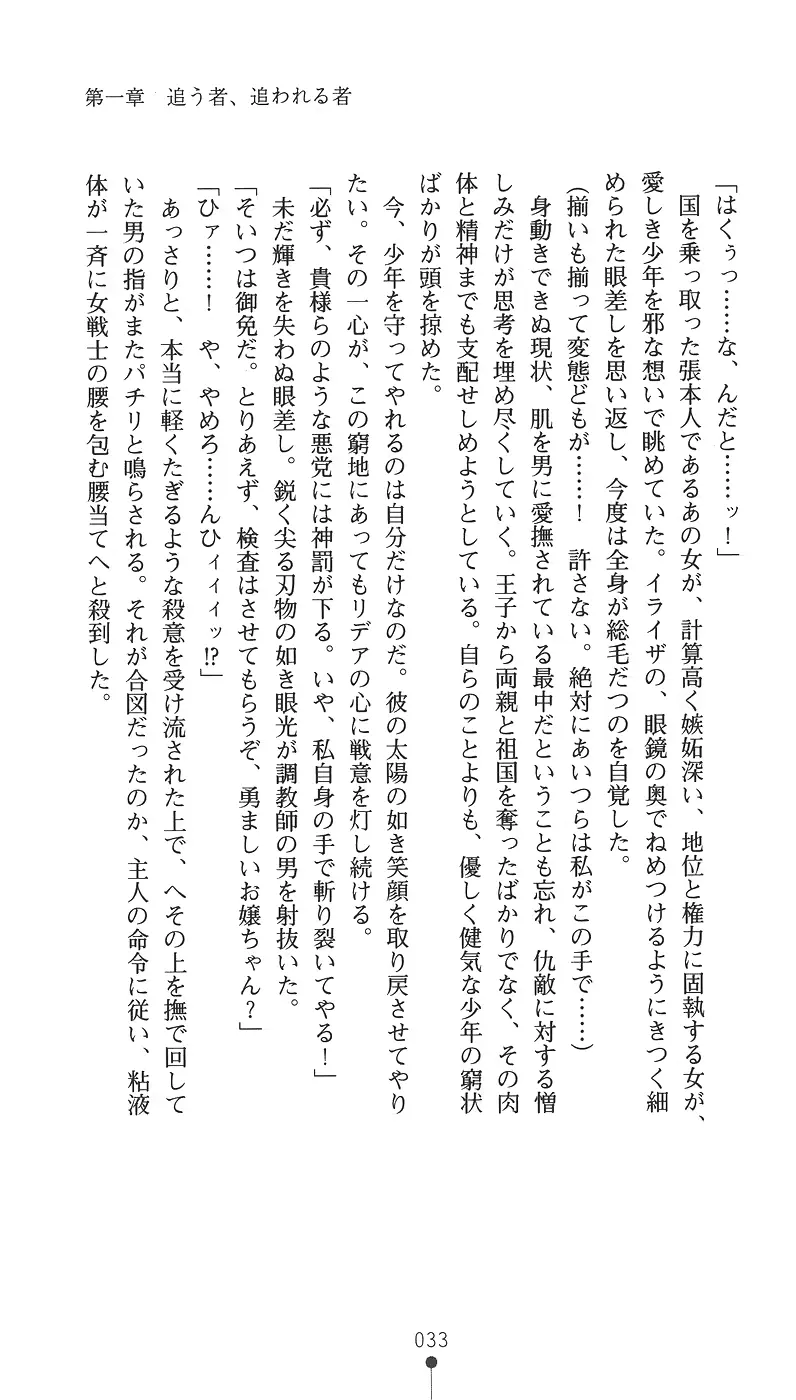 第一章　追う者、追われる者
「はくぅっ……な、んだと……ッ！」
　国を乗っ取った張本人であるあの女が、計算高く嫉妬深い、地位と権力に固執する女が、
愛しき少年を邪な想いで眺めていた。イライザの、眼鏡の奥でねめつけるようにきつく細
められた眼差しを思い返し、今度は全身が総毛だつのを自覚した。
（揃いも揃って変態どもが……！　許さない。絶対にあいつらは私がこの手で……）
　身動きできぬ現状、肌を男に愛撫されている最中だということも忘れ、仇敵に対する憎
しみだけが思考を埋め尽くしていく。王子から両親と祖国を奪ったばかりでなく、その肉
体と精神までも支配せしめようとしている。自らのことよりも、優しく健気な少年の窮状
ばかりが頭を掠めた。
　今、少年を守ってやれるのは自分だけなのだ。彼の太陽の如き笑顔を取り戻させてやり
たい。その一心が、この窮地にあってもリデアの心に戦意を灯し続ける。
「必ず、貴様らのような悪党には神罰が下る。いや、私自身の手で斬り裂いてやる！」
　未だ輝きを失わぬ眼差し。鋭く尖る刃物の如き眼光が調教師の男を射抜いた。
「そいつは御免だ。とりあえず、検査はさせてもらうぞ、勇ましいお嬢ちゃん？」
「ひァ……！　や、やめろ……んひィィィッ!?」
　あっさりと、本当に軽くたぎるような殺意を受け流された上で、へその上を撫で回して
いた男の指がまたパチリと鳴らされる。それが合図だったのか、主人の命令に従い、粘液
体が一斉に女戦士の腰を包む腰当てへと殺到した。
033